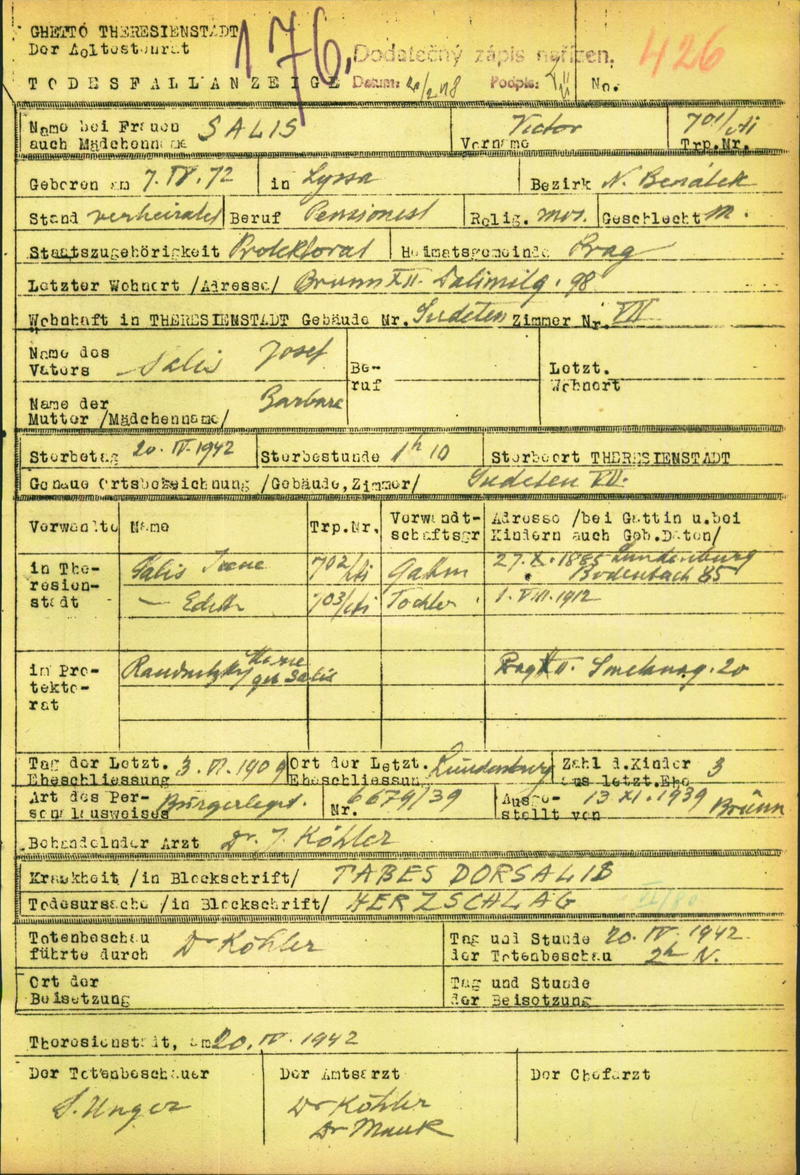 GHETTO THERESIENSTADT
Der Aeltestenrat
176, Dodatečný zápis nařízen. 426
TODESFALLANZEIGE Datum: Podpis: No.
Name bei Frauen auch Mädchenname SALIS Victor Vorname 701/Ai Trp.Nr.
Geboren am 7. IV. 72 in Lyssa Bezirk N. Benátek
Stand verheiratet Beruf Pensionist Relig. mos. Geschlecht M.
Staatszugehörigkeit Protektorat Heimatsgemeinde Prag
Letzter Wohnort /Adresse/ Brünn XII. Dalimilg. 98
Wohnhaft in THERESIENSTADT Gebäude Nr. Sudeten Zimmer Nr. VII
Name des Vaters Salis Josef Beruf Letzt. Wohnort
Name der Mutter /Mädchenname/ Barbara
Sterbetag 20. IV. 1942 Sterbestunde 1h 10 Sterbeort THERESIENSTADT
Genaue Ortsbezeichnung /Gebäude,Zimmer/ Sudeten VII.
Verwandte Name Trp.Nr. Verwandtschaftsgr Adresse /bei Gattin u.bei Kindern auch Geb.Daten/
in Theresienstadt Salis Irene 702/Ai Gattin 27. X. 1885 Lundenburg
Bodenbach 85
— Edith 703/Ai Tochter 1. VIII. 1912
in Protektorat Raudnitzky geb Salis Prag II.
Tag der Letzt. Eheschliessung 3. VI. 1909 Ort der Letzt. Eheschliessung Lundenburg Zahl d.Kinder aus letzt.Ehe 3
Art des Personalausweises Bürgerleget. Nr. 6679/39 Ausgestellt von 13 XI. 1939 Brünn
Behandelnder Arzt Dr. J. Köhler
Krankheit /in Blockschrift/ TABES DORSALIS
Todesursache /in Blockschrift/ HERZSCHLAG
Totenbeschau führte durch Dr Köhler Tag und Stunde der Totenbeschau 20. IV. 1942 2h N.
Ort der Beisetzung Tag und Stunde der Beisetzung
Theresienstadt, am 20. IV. 1942
Der Totenbeschauer Der Amtsarzt Der Chefarzt
S. Unger Dr Köhler